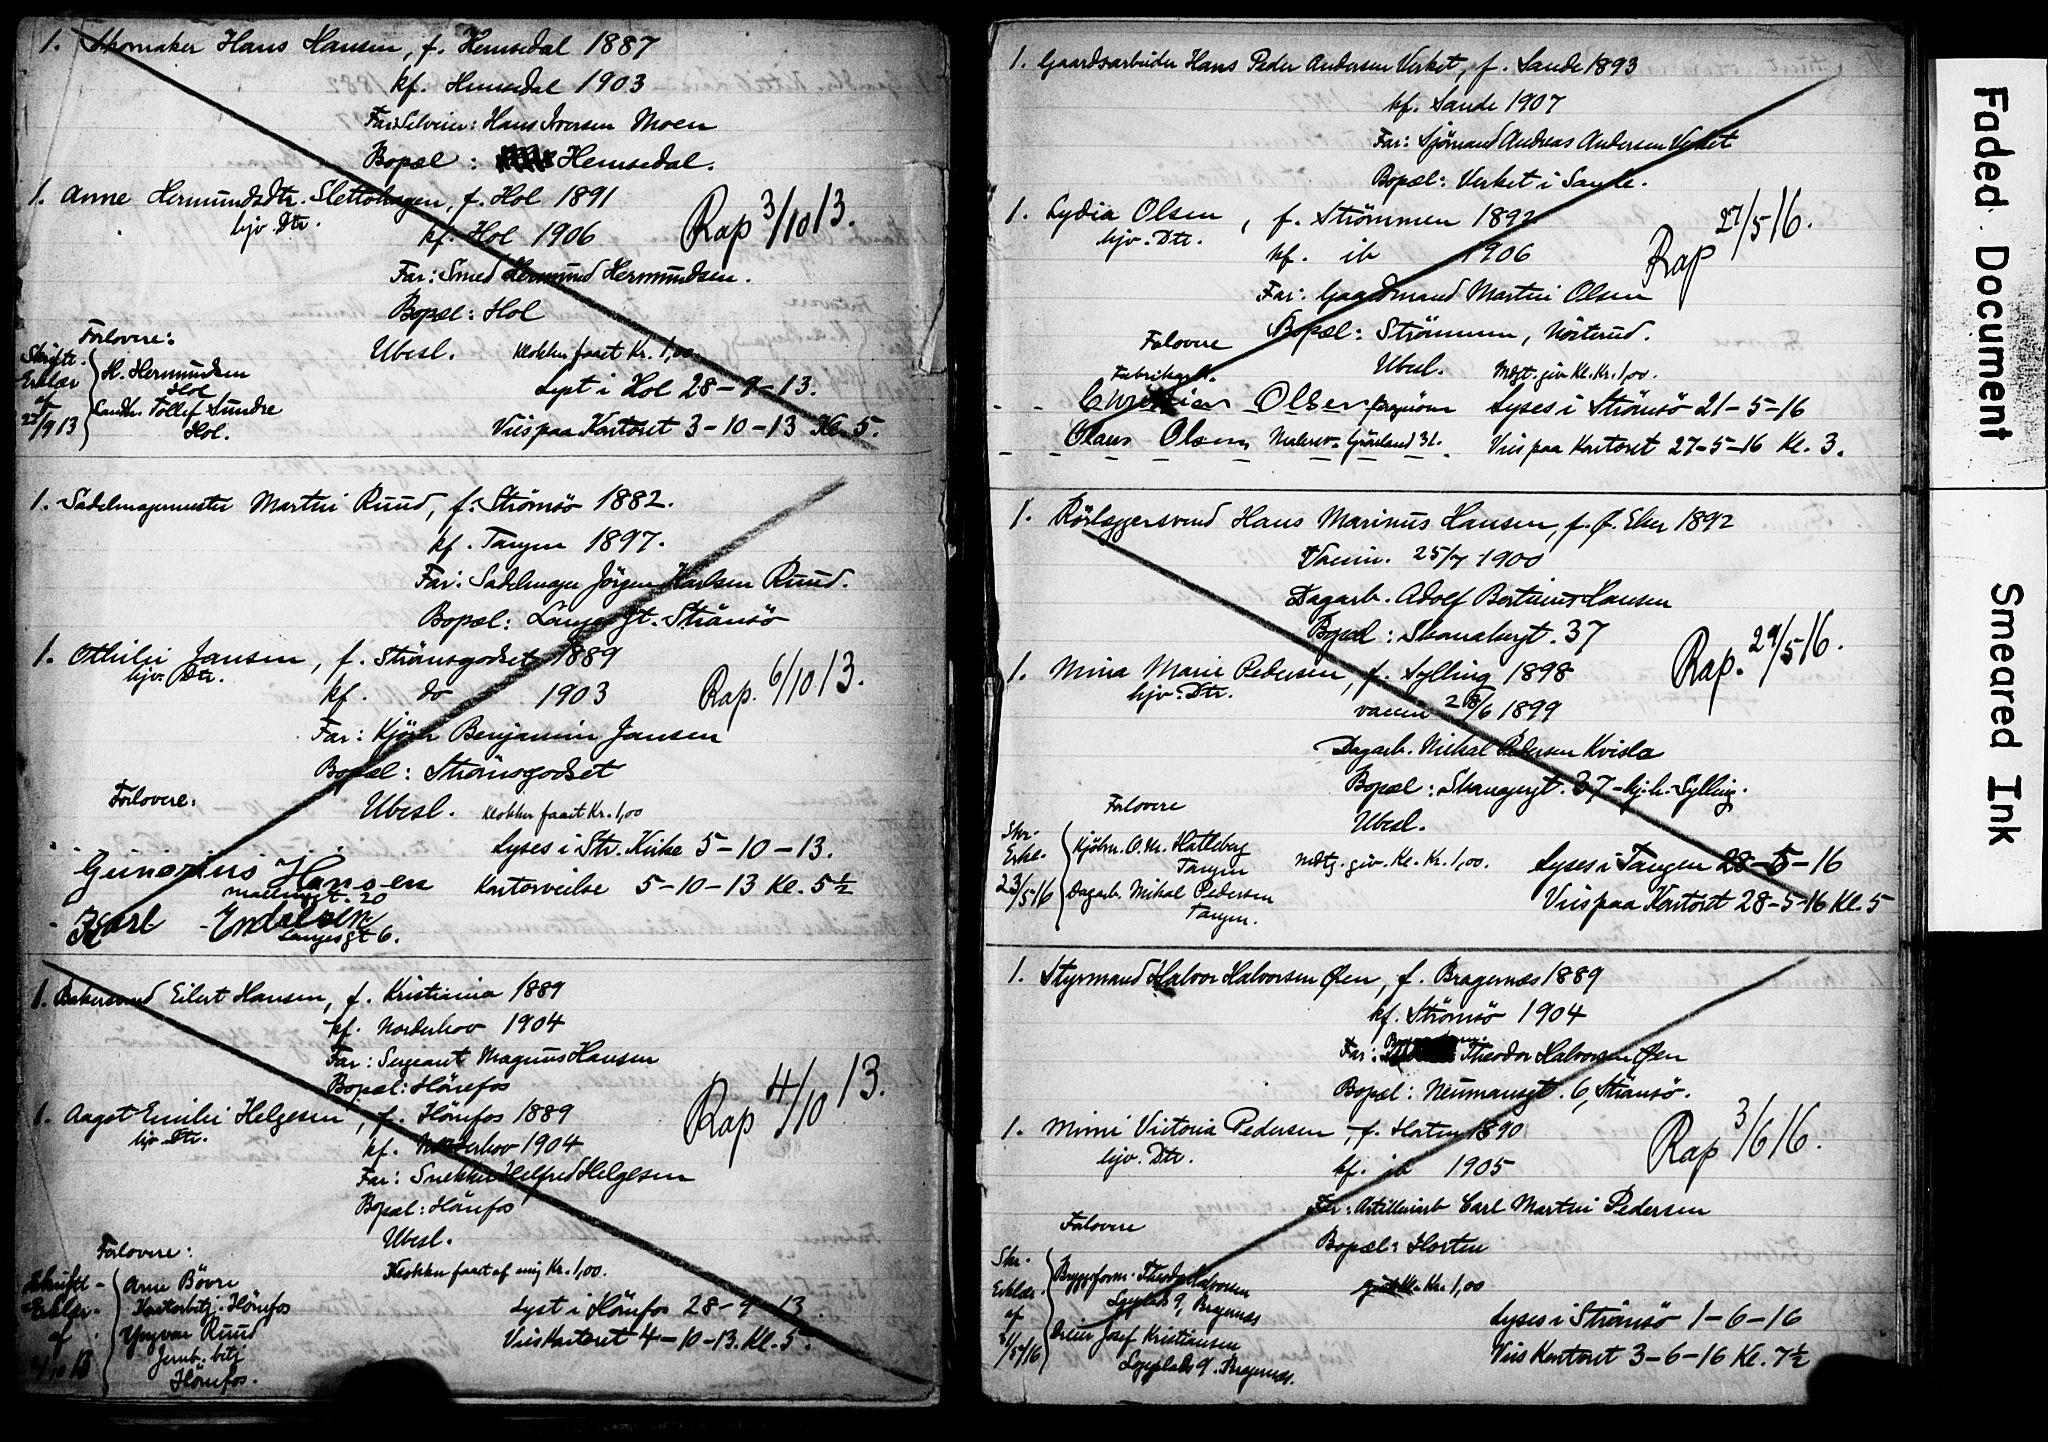 1. Skomaker Hans Hansen, f. Hemsedal 1887
kf. Hemsedal 1903
Far: Selveier: Hans Iversen Moen
Bopæl: Hemsedal.
1. Anne Hermundsdtr. Slettohagen, f. Hol 1891
hjv. Dtr.
kf. Hol 1906
Rap 3/10 13.
Far: Smed Hermund Hermundsen.
Bopæl: Hol
Forlovere:
Ubesl. Klokker faaet Kr. 1,00
Skriftl. Erklær af 22/9 13
H. Hermundsen
Hol
Landh. Tollef Sundre
Hol.
Lyst i Hol 28-9-13.
Vies paa Kontoret 3-10-13 Kl. 5.
1. Sadelmagermester Martin Ruud, f. Strömsö 1882.
kf. Tangen 1897.
Far: Sadelmager Jörgen Karlsen Ruud.
Bopæl: Langesgt. Strömsö
1. Othilie Jansen, f. Strömsgodset 1889
hjv. Dtr.
kf. do 1903
Rap. 6/10 13.
Far: Kjörer Benjamin Jansen
Bopæl: Strömsgodset
Forlovere:
Ubesl. Klokker faaet Kr. 1,00
Lyses i Str. Kirke 5-10-13.
Gunerius Hansen
20
Kontorvielse 5-10-13 Kl. 5½
Karl Endalsen
Langesgt 6.
1. Bakersvend Eilert Hansen, f. Kristiania 1889
kf. Norderhov 1904
Far: Sergeant Magnus Hansen
Bopæl: Hönefos
1. Aagot Emilie Helgesen, f. Hönefos 1889
hjv. Dtr.
kf. Norderhov 1904
Rap 4/10 13.
Far: Snekker Helfred Helgesen
Bopæl: Hönefos
Ubesl.
Forlovere:
Klokker faaet af mig Kr. 1,00.
Skriftl. Erklær. af 4/10 13
Arne Bövre
Kontorbetj. Hönefos
Yngvar Ruud
Jernb. betj
Hönefos.
Lyst i Hönefos 28-9-13.
Vies Kontoret 4-10-13. Kl. 5.
1. Gaardsarbeider Hans Peder Andersen Verket, f. Sande 1893
kf. Sande 1907
Far: Sjömand Andreas Andersen Verket
Bopæl: Verket i Sande.
1. Lydia Olsen, f. Strömmen 1892
hjv. Dtr.
kf. ib 1906
Rap 27/5 16.
Far: Gaardmand Martin Olsen
Bopæl: Strömmen, Nösterud.
Folovere
Ubesl. Mægt. giv. Kl. Kr. 1,00.
Fabrikarb.
Christian Olsen
Lyses i Strömsö 21-5-16
Olaus Olsen, Grönland 31.
Vies paa Kontoret 27-5-16 Kl. 3.
1. Rörlæggersvend Hans Marinus Hansen, f. Ö. Eker 1892
Vaccin. 25/7 1900
Dagarb. Adolf Bertinus Hansen
Bopæl: Skanskegt. 37
1. Mina Marie Pedersen, f. Sylling 1898
hjv. Dtr.
Rap. 29/5 16.
vaccin 28/6 1899
Dagarb. Mikal Pedersen Kvisla
Bopæl: Skansegt. 37 - hj.h. Sylling.
Forlovere
Ubesl.
Skr. Erkl. 23/5 16
Kjöbm. O. Kr. Hatleberg
Tangen
Dagarb. Mikal Pedersen
Tangen.
Mægt. giv. Kl. Kr. 1,00.
Lyses i Tangen 28-5-16
Vies paa Kontoret 28-5-16 Kl. 5
1. Styrmand Halvor Halvorsen Øen, f. Bragernæs 1889
kf. Strömsö 1904
Far: Theodor Halvorsen Øen
Bopæl: Neumansgt. 6, Strömsö.
1. Mimi Victoria Pedersen, f. Horten 1890
hjv. Dtr.
kf. ib 1905
Rap 3/6 16.
Far: Artilleriarb Carl Martin Pedersen
Folovere
Bopæl: Horten
Skr. Erklær. af 31/5 16
Byggeform. Theodor Halvorsen
9, Bragernæs
Josef Kristiansen
9. Bragernæs.
giv Kl. Kr. 1,00
Lyses i Strömsö 1-6-16
Vies Kontoret 3-6-16 Kl. 7½
Faded Document
Smeared Ink